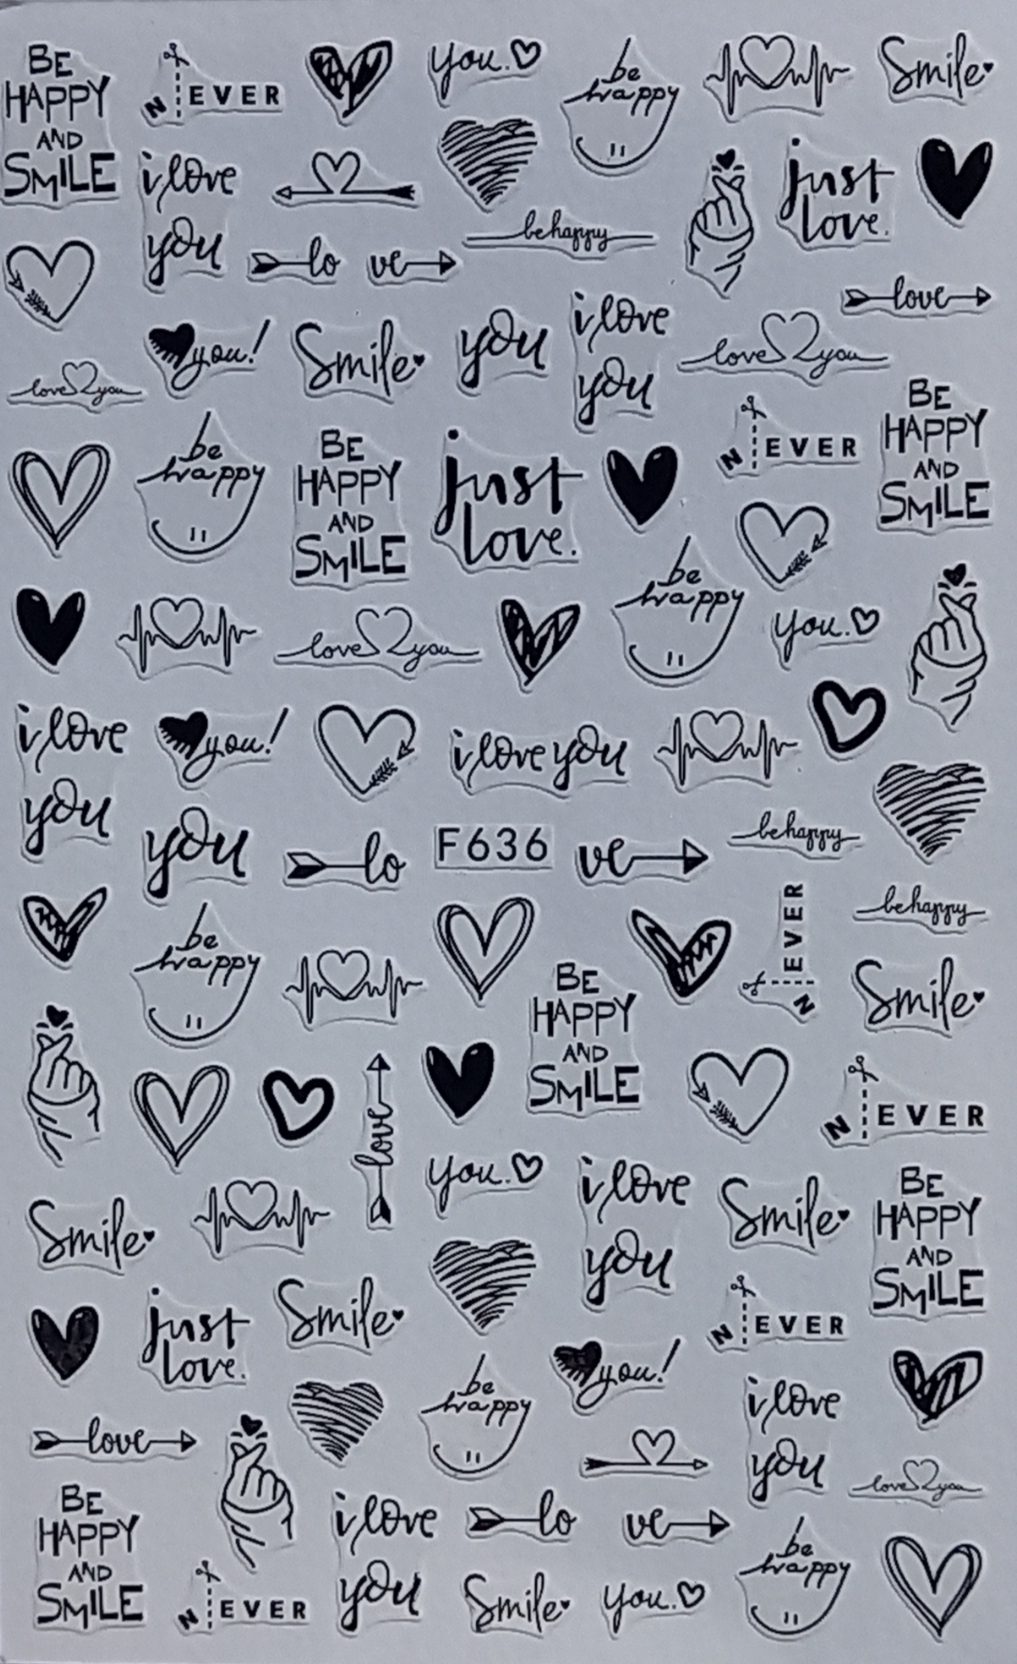 BE
HAPPY
AND
SMILE
N EVER
you.
be
happy
Smile
i love
you
just
love.
be happy
lo ve
love
you!
Smile
you
i love
you
love you
love you
BE
HAPPY
AND
SMILE
N EVER
be
happy
BE
HAPPY
AND
SMILE
just
love.
be
happy
you.
love you
i love
you
you!
i love you
be happy
you
lo
F636
ve
N EVER
be happy
be
happy
Smile
BE
HAPPY
AND
SMILE
N EVER
love
you.
i love
you
Smile
BE
HAPPY
AND
SMILE
Smile
Smile
N EVER
just
love.
you!
be
happy
i love
you
love
love you
BE
HAPPY
AND
SMILE
i love
you
lo ve
be
happy
N EVER
Smile
you.